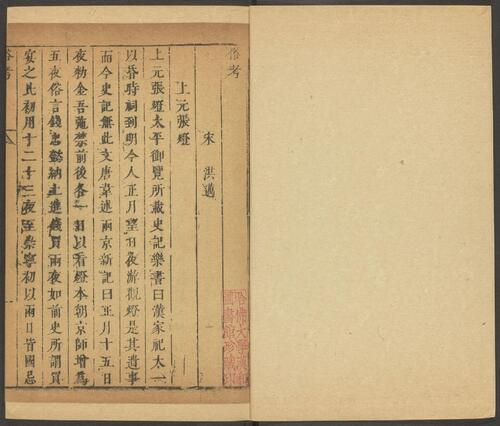 俗考
宋 洪邁
上元張燈
上元張燈太平御覽所載史記樂書曰漢家祀太一
以昏時祠到明今人正月望日夜游觀燈是其遺事
而今史記無此文唐韋述兩京新記曰正月十五日
夜勅金吾弛禁前後各一日以看燈本朝京師增爲
五夜俗言錢忠懿納土進錢買兩夜如前史所謂買
宴之比初用十二十三夜至崇寧初以兩日皆國忌
俗考
哈佛大學漢和
圖書館珍藏印